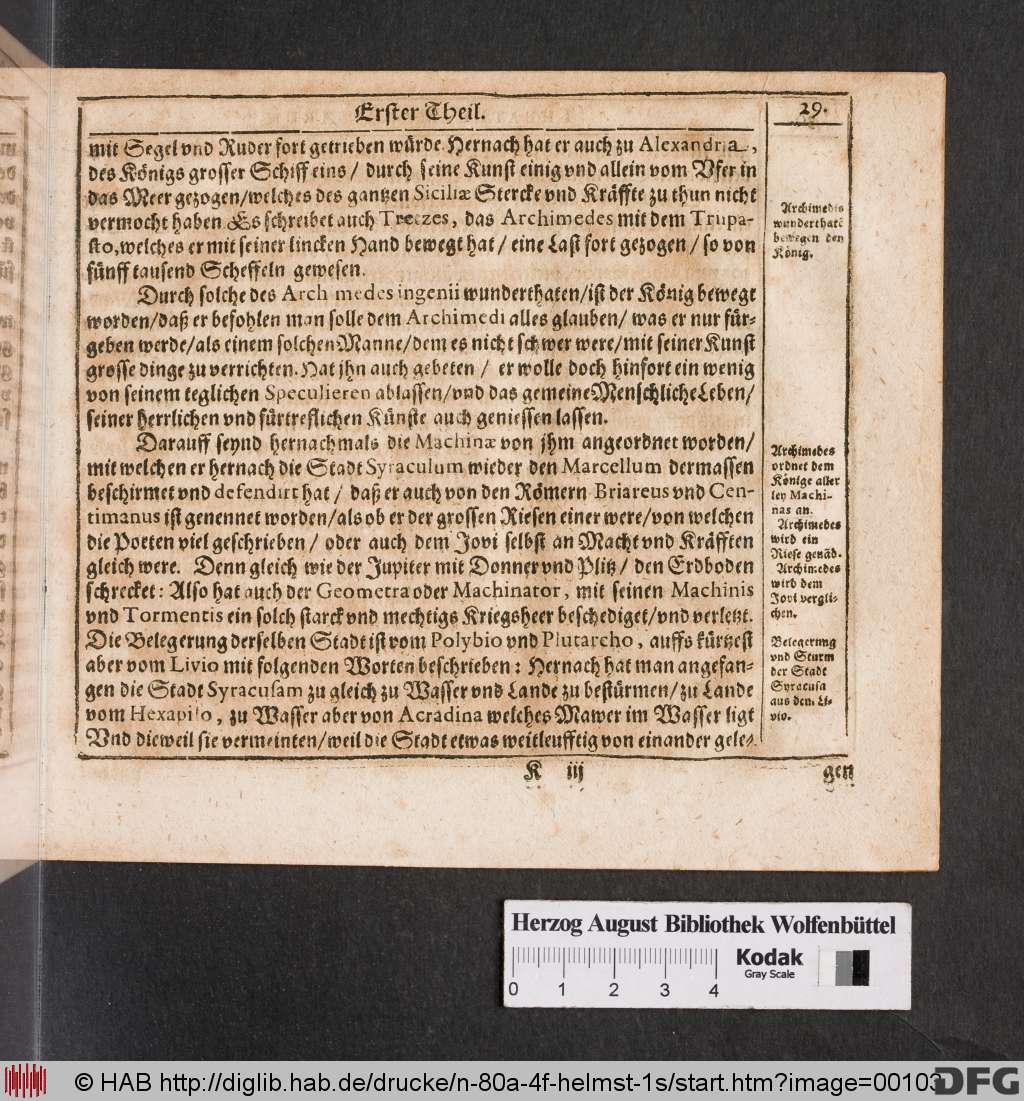 Erster Theil.
29.
mit Segel vnd Ruder fort getrieben würde. Hernach hat er auch zu Alexandria,
des Königs grosser Schiff eins / durch seine Kunst einig vnd allein vom Vfer in
das Meer gezogen/welches des gantzen Siciliæ Stercke vnd Kräffte zu thun nicht
vermocht haben Es schreibet auch Tzetzes, das Archimedes mit dem Trupa-
sto, welches er mit seiner lincken Hand bewegt hat / eine Last fort gezogen / so von
fünff tausend Scheffeln gewesen.
Durch solche des Archimedes ingenii wunderthaten/ist der König bewegt
worden/daß er befohlen man solle dem Archimedi alles glauben/ was er nur für-
geben werde/als einem solchen Manne/dem es nicht schwer were/mit seiner Kunst
grosse dinge zu verrichten. Hat jhn auch gebeten / er wolle doch hinfort ein wenig
von seinem teglichen Speculieren ablassen/vnd das gemeine Menschliche Leben/
seiner herrlichen vnd fürtreflichen Künste auch geniessen lassen.
Darauff seynd hernachmals die Machinæ von jhm angeordnet worden/
mit welchen er hernach die Stadt Syraculum wieder den Marcellum dermassen
beschirmet vnd defendirt hat / daß er auch von den Römern Briareus vnd Cen-
timanus ist genennet worden/als ob er der grossen Riesen einer were/von welchen
die Poeten viel geschrieben / oder auch dem Jovi selbst an Macht vnd Kräfften
gleich were. Denn gleich wie der Jupiter mit Donner vnd Plitz / den Erdboden
schrecket: Also hat auch der Geometra oder Machinator, mit seinen Machinis
vnd Tormentis ein solch starck vnd mechtigs Kriegsheer beschediget/vnd verletzt.
Die Belegerung derselben Stadt ist vom Polybio vnd Plutarcho, auffs kürtzest
aber vom Livio mit folgenden Worten beschrieben: Hernach hat man angefan-
gen die Stadt Syracusam zu gleich zu Wasser vnd Lande zu bestürmen/zu Lande
vom Hexapilo, zu Wasser aber von Acradina welches Mawer im Wasser ligt
Vnd dieweil sie vermeinten/weil die Stadt etwas weitleufftig von einander gele-
K iij
gen
Archimedis
wunderthatẽ
bewegen den
König.
Archimedes
ordnet dem
Könige aller
ley Machi-
nas an.
Archimedes
wird ein
Riese genãd.
Archimedes
wird dem
Jovi vergli-
chen.
Belegerung
vnd Sturm
der Stadt
Syracusa
aus dem Li-
vio.
Herzog August Bibliothek Wolfenbüttel
Kodak
Gray Scale
0 1 2 3 4
© HAB http://diglib.hab.de/drucke/n-80a-4f-helmst-1s/start.htm?image=00103
DFG